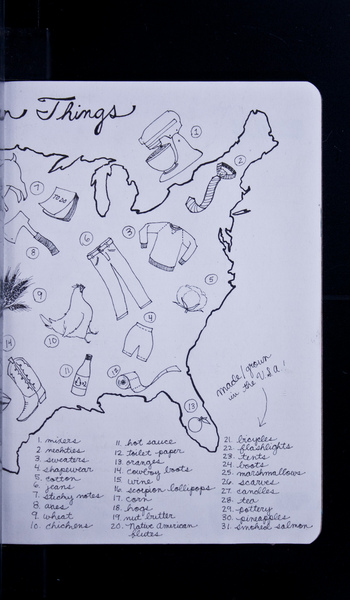 Things
1
2
7
TO DO
3
6
8
5
9
4
10
14
11
12
13
made/grown
in the USA!
1. mixers
2. neckties
3. sweaters
4. shapewear
5. cotton
6. jeans
7. sticky notes
8. axes
9. wheat
10. chickens
11. hot sauce
12. toilet paper
13. oranges
14. cowboy boots
15. wine
16. scorpion lollipops
17. corn
18. hogs
19. nut butter
20. Native American
flutes
21. bicycles
22. flashlights
23. tents
24. boats
25. marshmallows
26. scarves
27. candles
28. tea
29. pottery
30. pineapples
31. smoked salmon